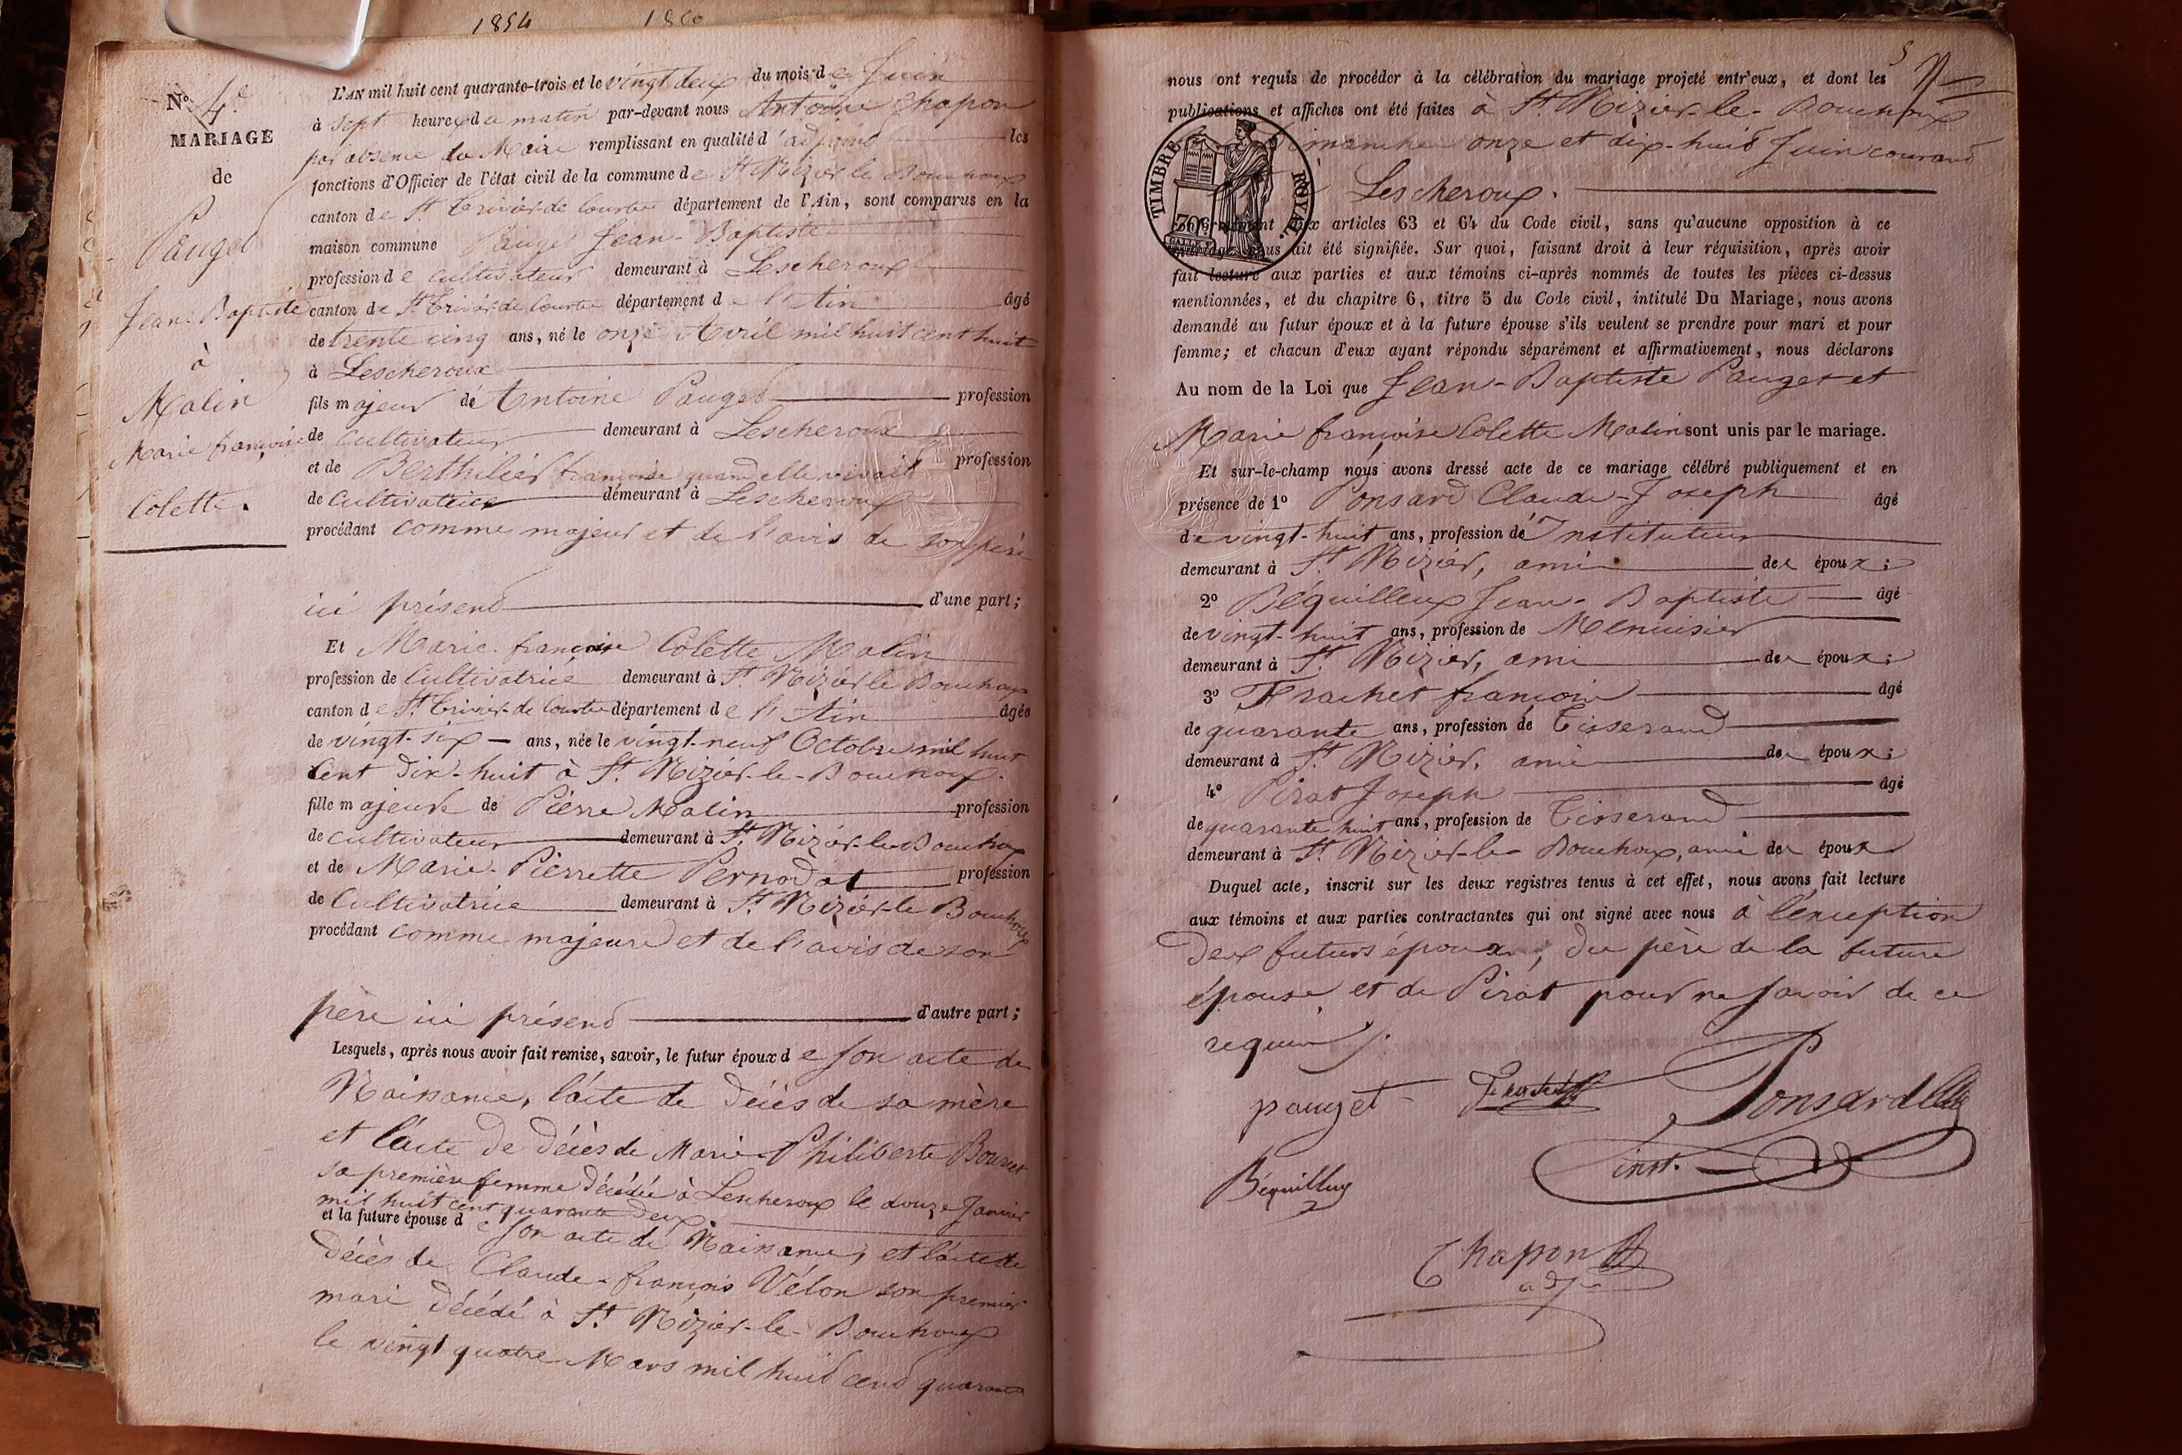 1854
N.º 4.e
MARIAGE
de
Pauget
Jean-Baptiste
à
Malin
Marie françoise
Colette.
L'AN mil huit cent quarante-trois et le vingt deux du mois de Juin
à sept heures du matin par-devant nous Antoine Chapon
par absence du Maire remplissant en qualité d'adjoint les
fonctions d'Officier de l'état civil de la commune de St Nizier le Bouchoux
canton de St Trivier de Courtes département de l'Ain, sont comparus en la
maison commune Pauget Jean-Baptiste
profession de cultivateur demeurant à Lescheroux
canton de St Trivier de Courtes département de l'Ain âgé
de trente cinq ans, né le onze Avril mil huit cent huit
à Lescheroux
fils majeur de Antoine Pauget profession
de cultivateur demeurant à Lescheroux
et de Berthilier françoise quand elle vivait profession
de Cultivatrice demeurant à Lescheroux
procédant comme majeur et de l'avis de son père
ici présent d'une part;
Et Marie-françoise Colette Malin
profession de Cultivatrice demeurant à St Nizier le Bouchoux
canton de St Trivier de Courtes département de l'Ain âgée
de vingt-six ans, née le vingt-neuf Octobre mil huit
Cent Dix-huit à St Nizier-le-Bouchoux.
fille majeure de Pierre Malin profession
de cultivateur demeurant à St Nizier-le-Bouchoux
et de Marie-Pierrette Pernodat profession
de Cultivatrice demeurant à St Nizier-le Bouchoux
procédant comme majeure et de l'avis de son
père ici présent d'autre part;
Lesquels, après nous avoir fait remise, savoir, le futur époux de son acte de
Naissance, l'acte de décès de sa mère
et l'acte de décès de Marie-Philiberte Bouvet
sa première femme décédée à Lescheroux le douze Janvier
mil huit cent quarante deux.
et la future épouse de son acte de Naissance, et l'acte de
décès de Claude-françois Vélon son premier
mari décédé à St Nizier-le-Bouchoux
le vingt quatre Mars mil huit cent quarante
5
nous ont requis de procéder à la célébration du mariage projeté entr'eux, et dont les
publications et affiches ont été faites à St Nizier-le-Bouchoux
dimanches onze et dix-huit Juin courant
Lescheroux.
TIMBRE ROYAL.
conformément aux articles 63 et 64 du Code civil, sans qu'aucune opposition à ce
mariage nous ait été signifiée. Sur quoi, faisant droit à leur réquisition, après avoir
fait lecture aux parties et aux témoins ci-après nommés de toutes les pièces ci-dessus
mentionnées, et du chapitre 6, titre 5 du Code civil, intitulé Du Mariage, nous avons
demandé au futur époux et à la future épouse s'ils veulent se prendre pour mari et pour
femme; et chacun d'eux ayant répondu séparément et affirmativement, nous déclarons
Au nom de la Loi que Jean-Baptiste Pauget et
Marie françoise Colette Malin sont unis par le mariage.
Et sur-le-champ nous avons dressé acte de ce mariage célébré publiquement et en
présence de 1º Ponsard Claude-Joseph âgé
de vingt-huit ans, profession de Instituteur
demeurant à St Nizier, ami des époux;
2º Béquilleux Jean-Baptiste âgé
de vingt-huit ans, profession de Menuisier
demeurant à St Nizier, ami des époux;
3º Frachet françois âgé
de quarante ans, profession de Tisserand
demeurant à St Nizier, ami des époux;
4º Pirat Joseph âgé
de quarante huit ans, profession de Tisserand
demeurant à St Nizier-le-Bouchoux, ami des époux
Duquel acte, inscrit sur les deux registres tenus à cet effet, nous avons fait lecture
aux témoins et aux parties contractantes qui ont signé avec nous à l'exception
des futurs époux, du père de la future
épouse et de Pirat pour ne savoir de ce
requis.
pauget Ponsard
inst.
Béquilleux
Chapon
adj.